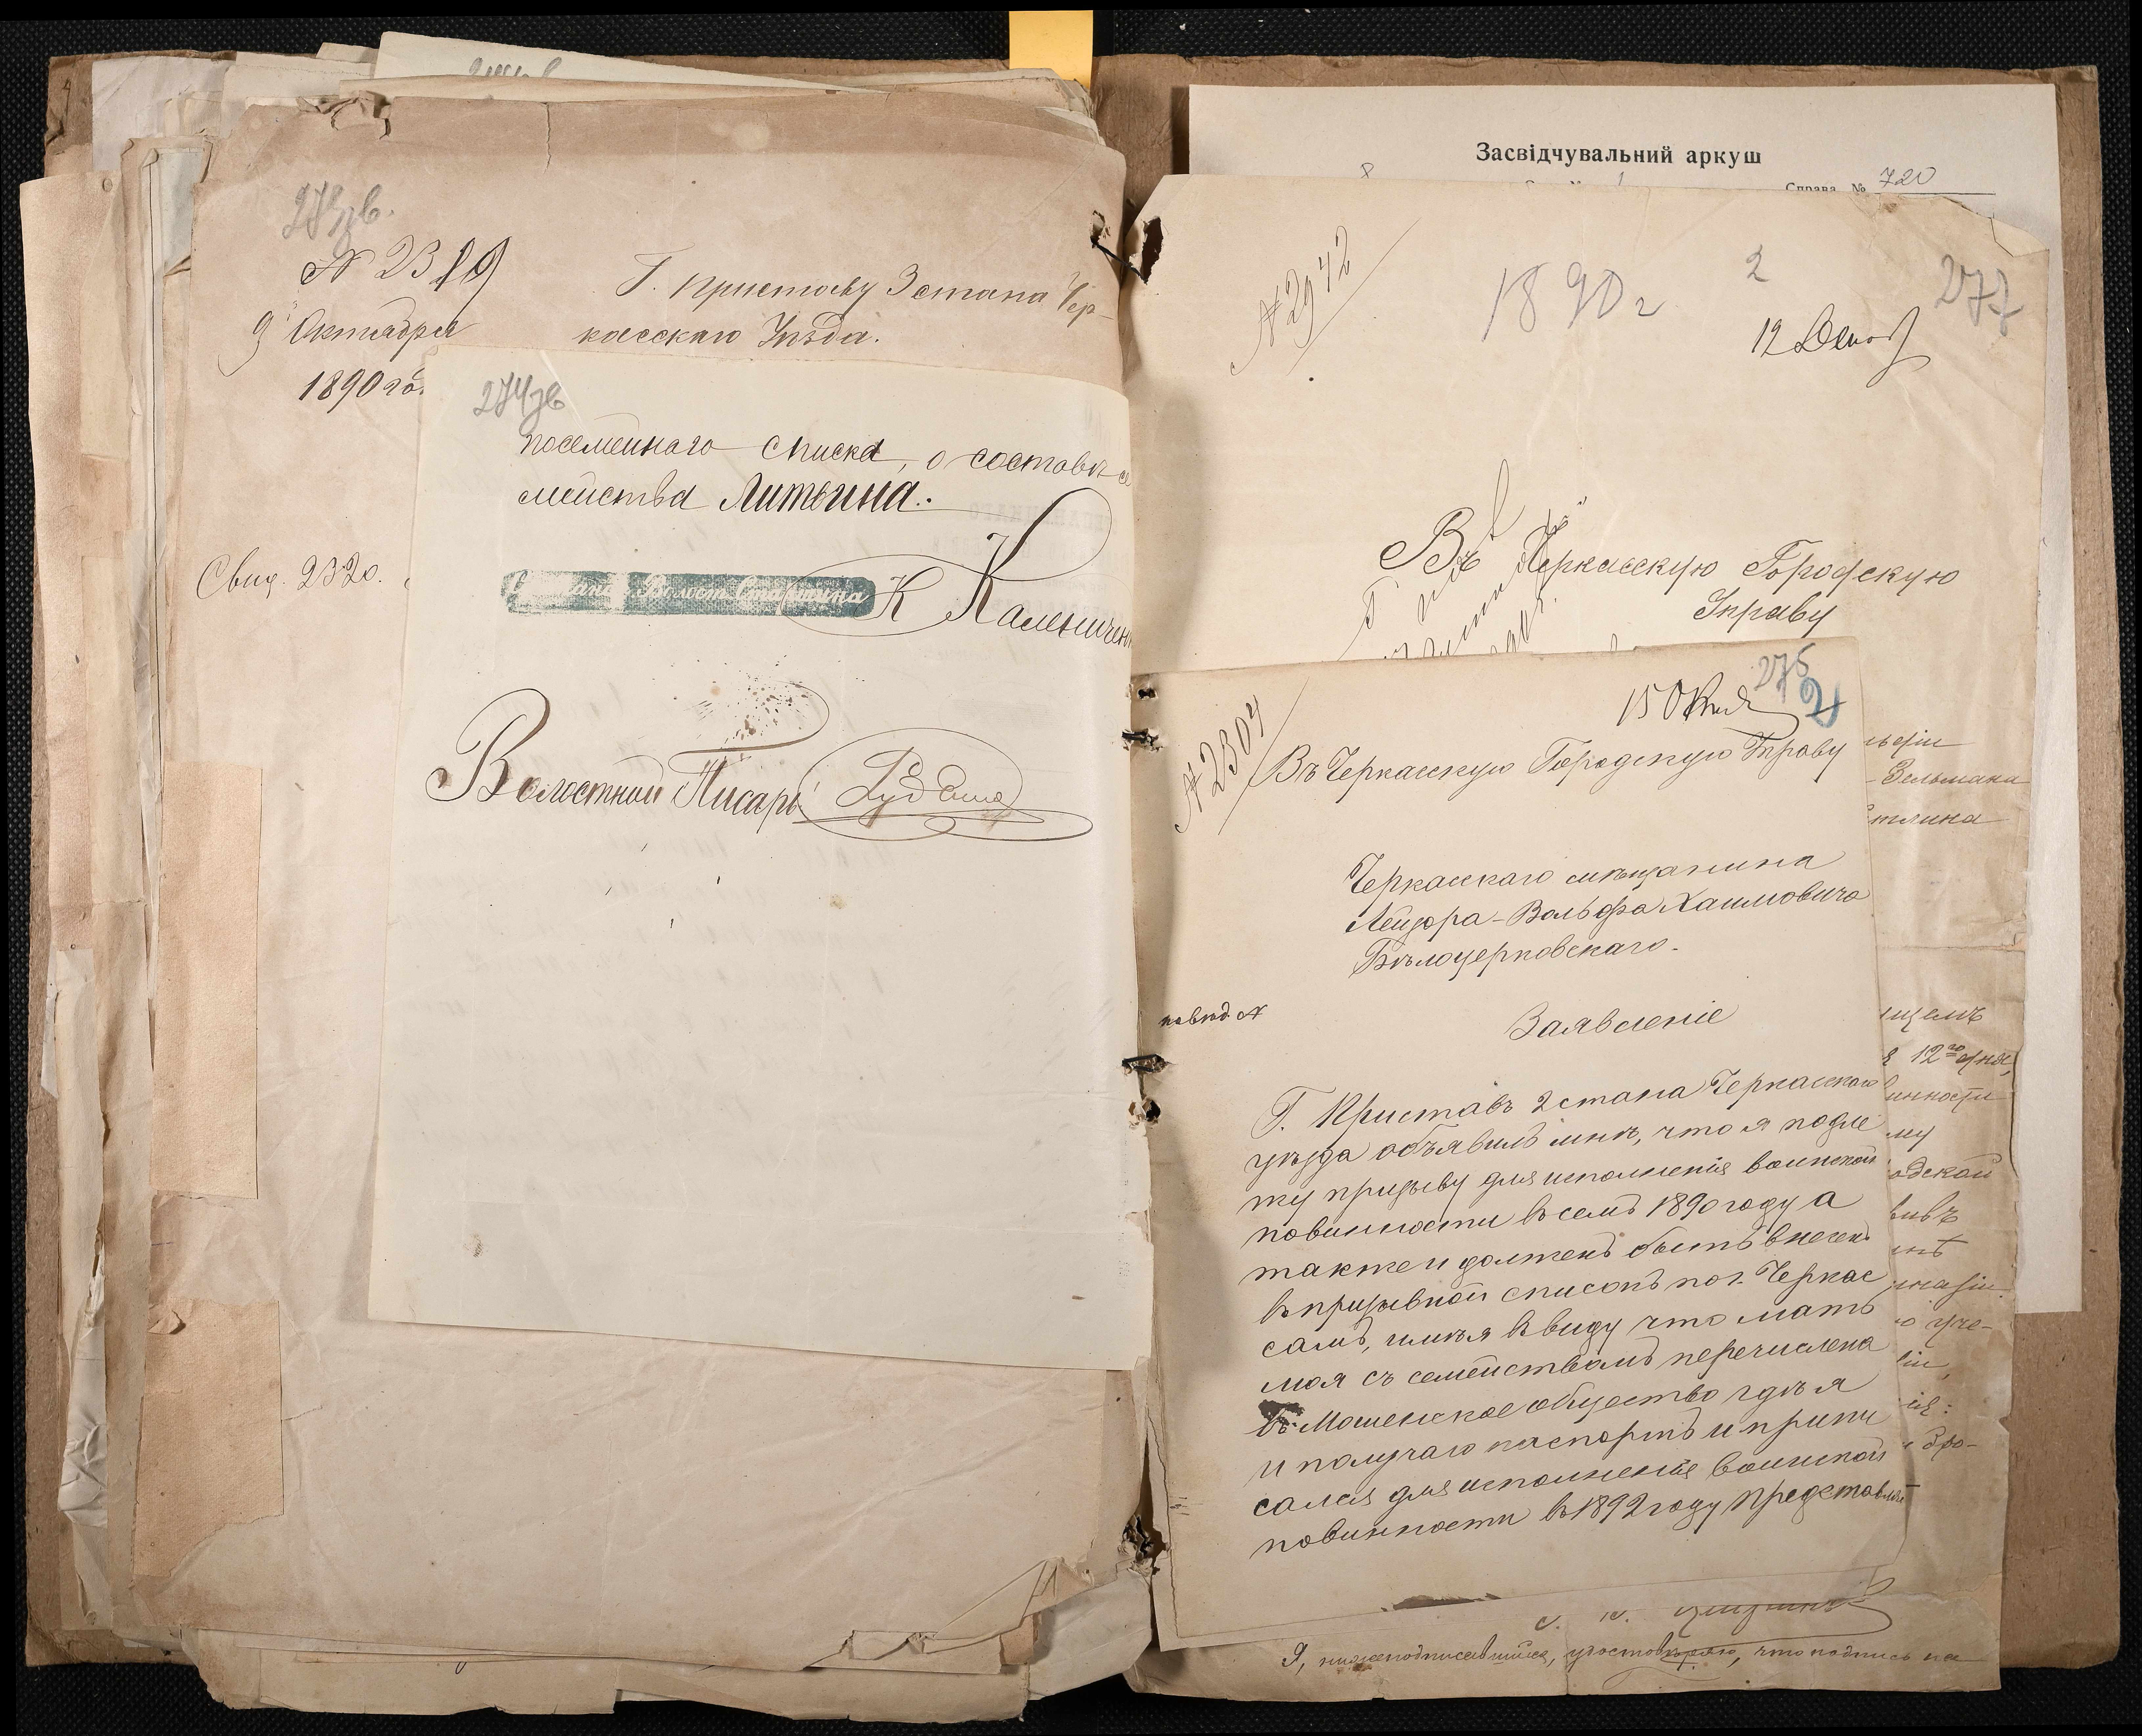 273зв.
№ 2319
9 Октября
1890 го.
Г. Приставу 3 стана Чер-
касскаго Уѣзда.
Свид. 2320.
274зв
посемейнаго списка, о составѣ се
мейства Литвина.
Волост. Старшина К Калениченк
Волостной Писарь
Засвідчувальний аркуш
Справа № 720
№ 2972
1890 г
2
277
12 Декаб
Въ Черкасскую Городскую
Управу
275
2
15 Октя
№ 2304
Въ Черкасскую Городскую Управу
Черкасскаго мѣщанина
Лейзора-Вольфа Хаимовича
Бѣлоцерковскаго.
Заявленіе
Г. Приставъ 2 стана Черкасскаго
уѣзда объявилъ мнѣ, что я подле
жу призыву для исполненія воинской
повинности въ семъ 1890 году а
также и долженъ быть внесенъ
въ призывной списокъ по г. Черкас
самъ, имѣя въ виду что мать
моя съ семействомъ перечислена
въ Мошенское общество гдѣ я
и получаю паспортъ и припи
сался для исполненія воинской
повинности въ 1892 году представляя
Зельмана
12го дня,
Я, нижеподписавшійся, удостовѣряю, что подпись на